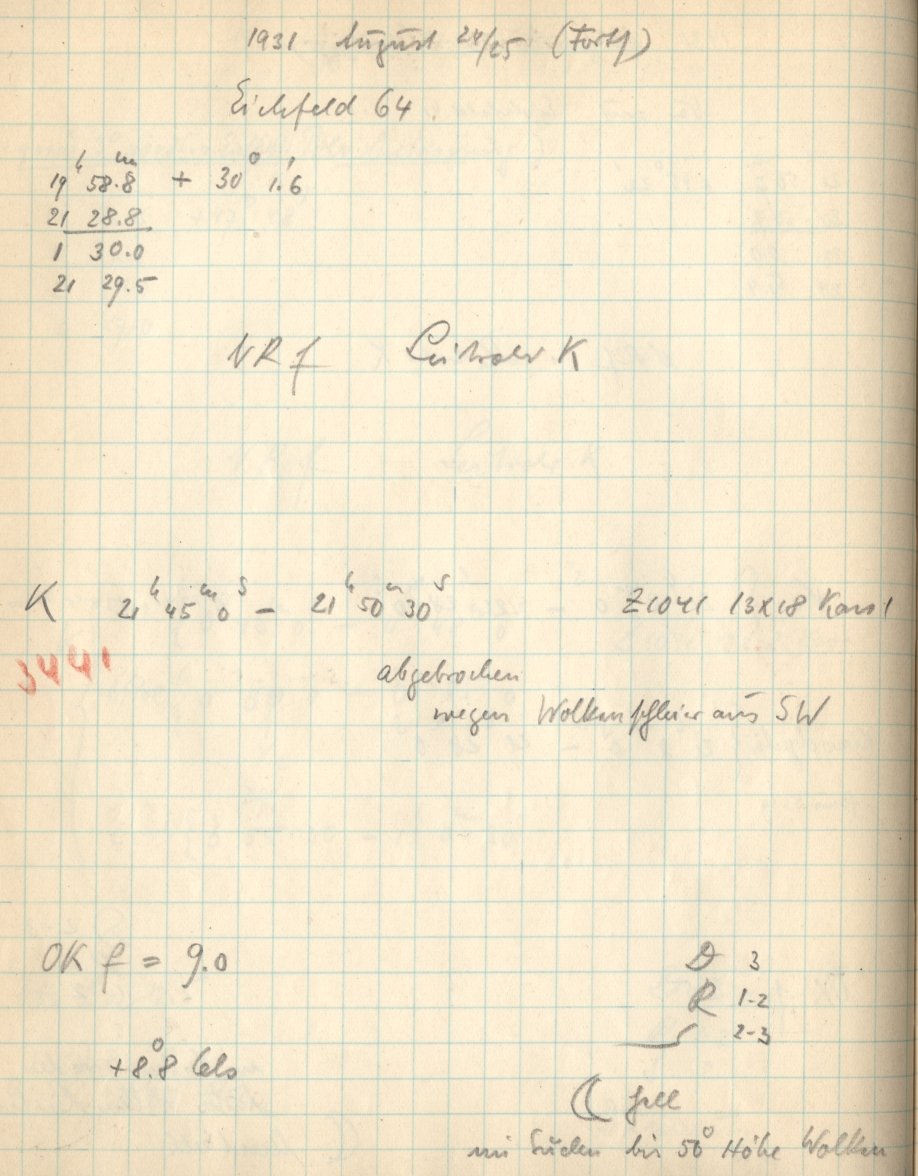 1931 August 24/25 (Fortf)
Eichfeld 64
19h 58.8m + 30° 1.'6
21 28.8
1 30.0
21 29.5
NR f K
K 21h 45m 0s – 21h 50m 30s Z1041 13x18
3441
abgebrochen
wegen Wolkenschleier aus SW
OK f = 9.0
D 3
R 1-2
2-3
+8.°8 Cels
☾ hell
im Süden bis 50° Höhe Wolken